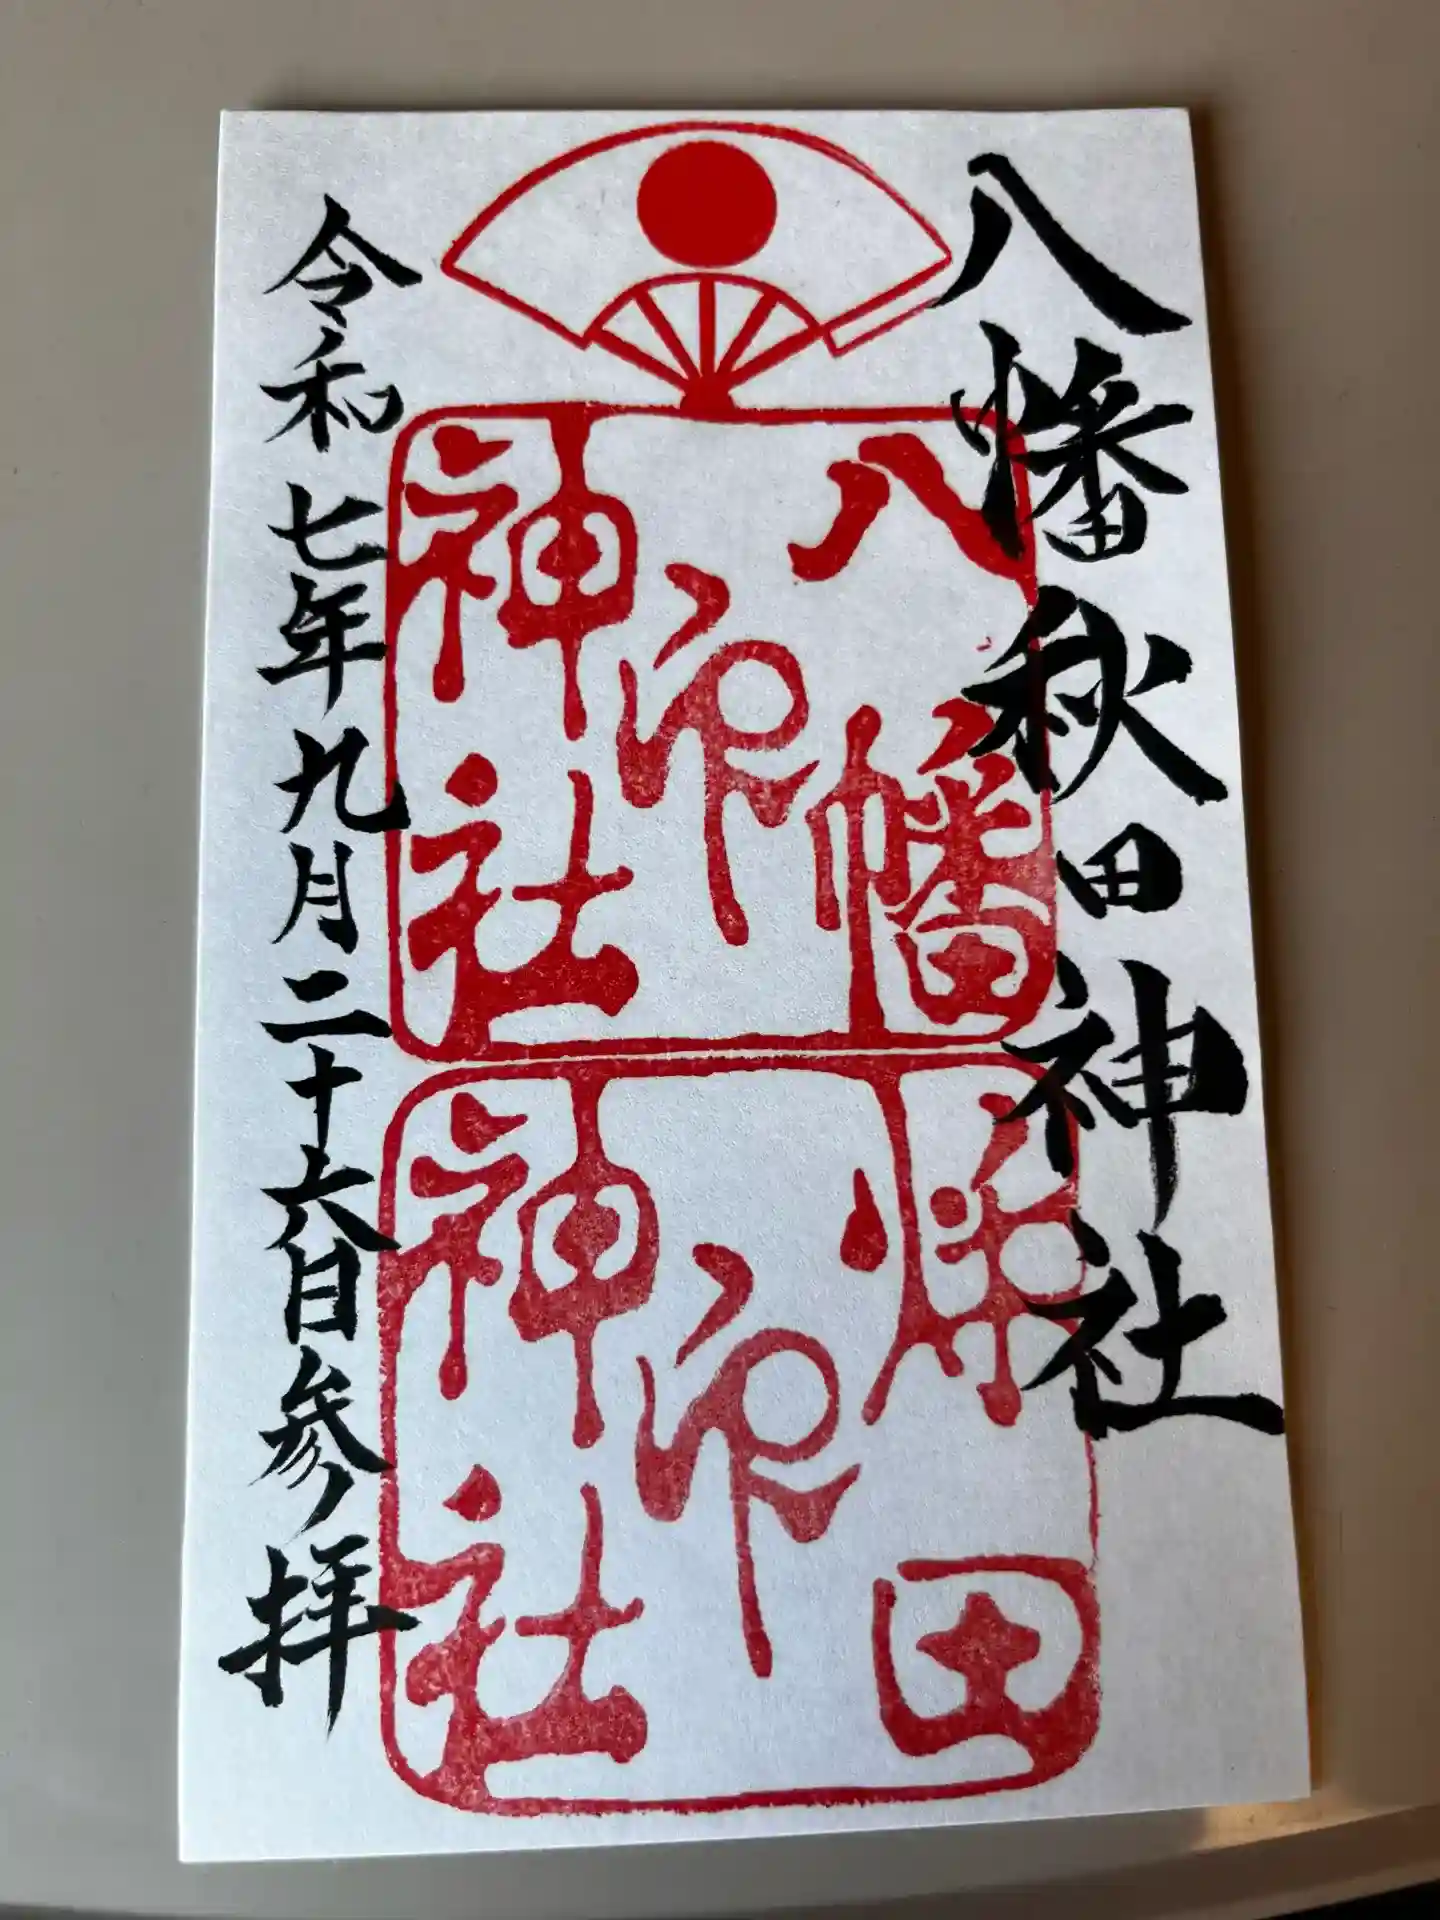 八幡秋田神社
八幡
神社
印
秋田
神社
印
令和七年九月二十六日参拝